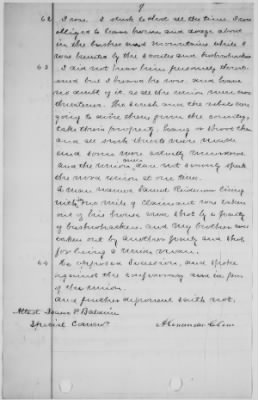 7
62 I was. I stuck to that all the time. I was
obliged to leave home and dodge about
in the bushes and mountains while I
was hunted by the scouts and bushwhackers
63 I did not hear him personally threat-
ened but I know he was, and have
no doubt of it as all the union men were
threatened. The scouts and the rebels were
going to drive them from the country,
take their property, hang & shoot them
and all such threats were made
and some were actually murdered
and the union men dare not scarcely speak
the word union at one time.
A man named Samuel Rideman living
within one mile of claimant was taken
out of his house and shot by a party
of bushwhackers. and my brother was
taken out by another party and shot
for being a union man.
64 He opposed secession, and spoke
against the confederacy and in favor
of the union.
And further deponent saith not.
Attest P. Baldwin
Special Comr
Alexander